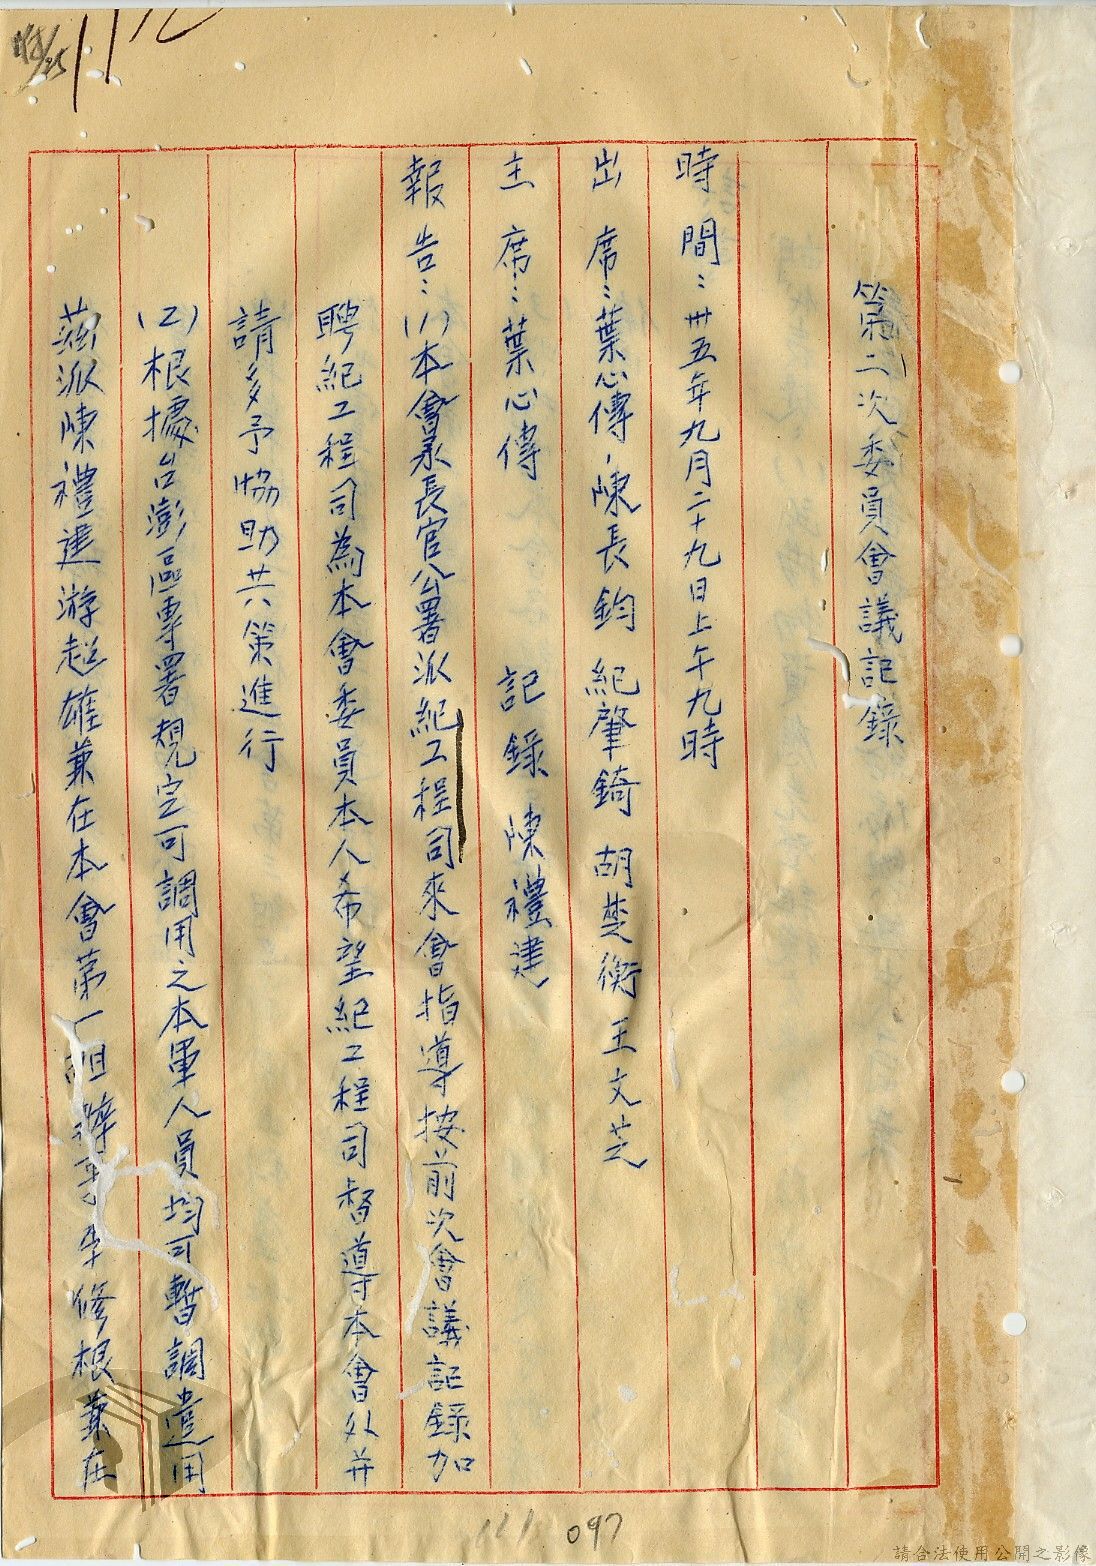 第二次委員會議記錄
時間：卅五年九月二十九日上午九時
出席：葉心傳、陳長鈞 紀肇錡 胡楚衡 王文芝
主席：葉心傳 記錄 陳禮建
報告：(1)本會承長官公署派紀工程司來會指導按前次會議記錄加
聘紀工程司為本會委員本人希望紀工程司督導本會外并
請多予協助共策進行
(2)根據台澎區專署規定可調用之本軍人員均可暫調遣用
茲派陳禮建游超雄兼在本會第一組辦事李修根兼在
097
請合法使用公開之影像